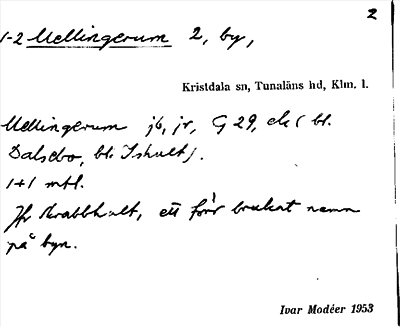 2
1-2 Mellingerum 2, by,
Kristdala sn, Tunaläns hd, Klm. l.
Mellingerum jb, jr, G 29, ek (bl.
Dalsebo, bl. Ishult).
1+1 mtl.
Jfr Krabbhult, ett förr brukat namn
på byn.
Ivar Modéer 1953